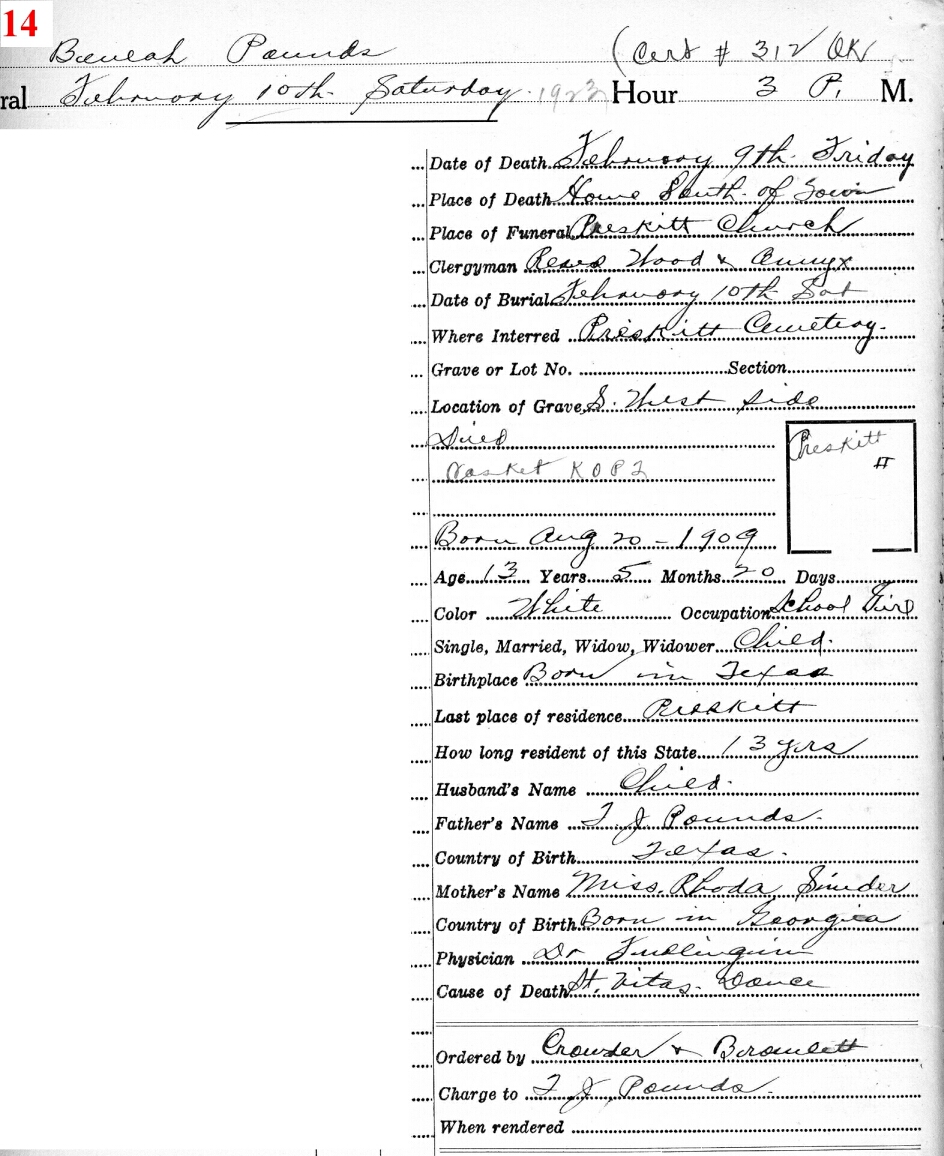 14
Beulah Pounds (Cert # 312 OK
ral February 10th Saturday 1923 Hour 3 P. M.
Date of Death February 9th Friday
Place of Death Home South of Town
Place of Funeral Preskitt Church
Clergyman Revs Wood &
Date of Burial February 10th Sat
Where Interred Preskitt Cemetery.
Grave or Lot No. Section
Location of Grave S. West side
Died
Preskitt
Casket K O P 2
Born Aug 20 - 1909
Age 13 Years 5 Months 20 Days
Color White Occupation School Girl
Single, Married, Widow, Widower Child.
Birthplace Born in Texas
Last place of residence Preskitt
How long resident of this State 13 yrs
Husband's Name Child.
Father's Name T J Pounds.
Country of Birth Texas.
Mother's Name Miss. Rhoda
Country of Birth Born in Georgia
Physician Dr
Cause of Death St. Vitas. Dance
Ordered by Crowder &
Charge to T J Pounds.
When rendered